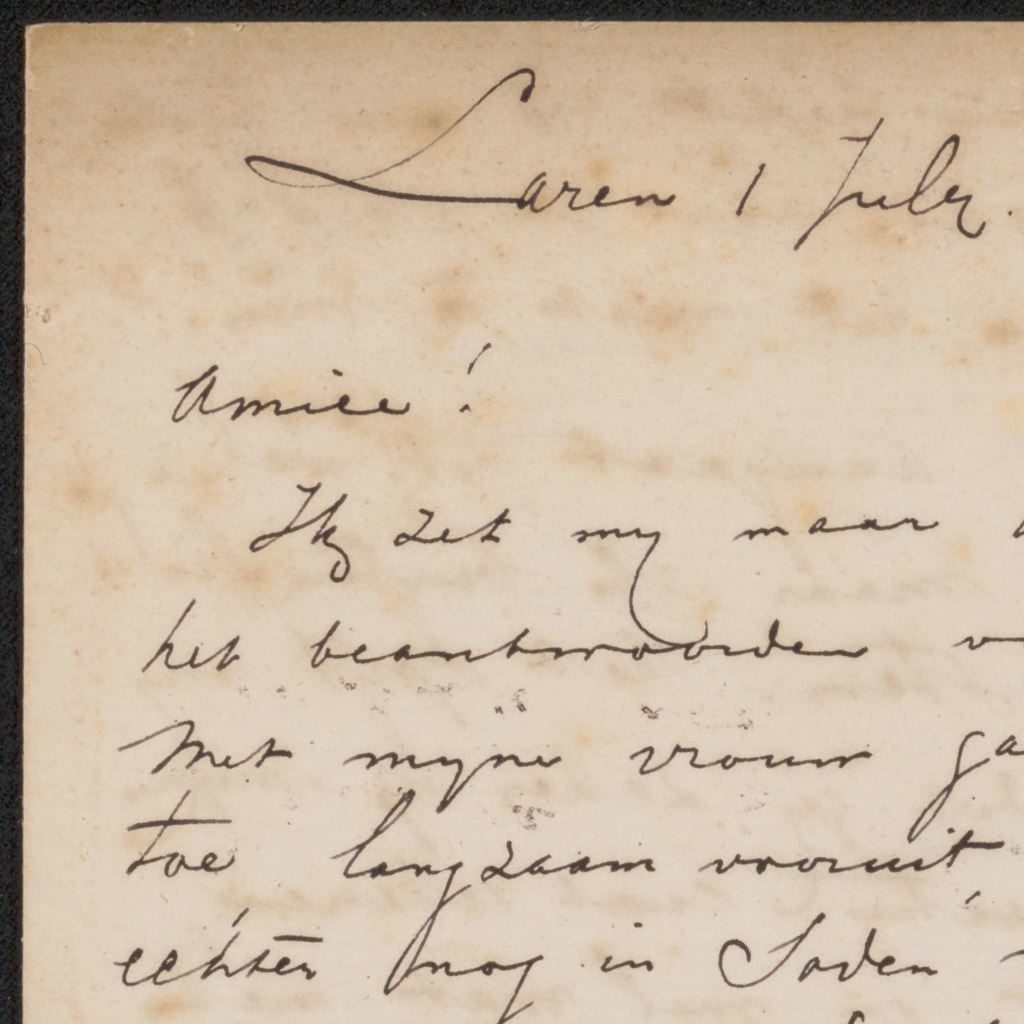 Laren 1 July.
Amice!
Ik zet my maar
het beantwoorden
Met myne vrouw ga
toe langzaam vooruit
echter nog in Soden